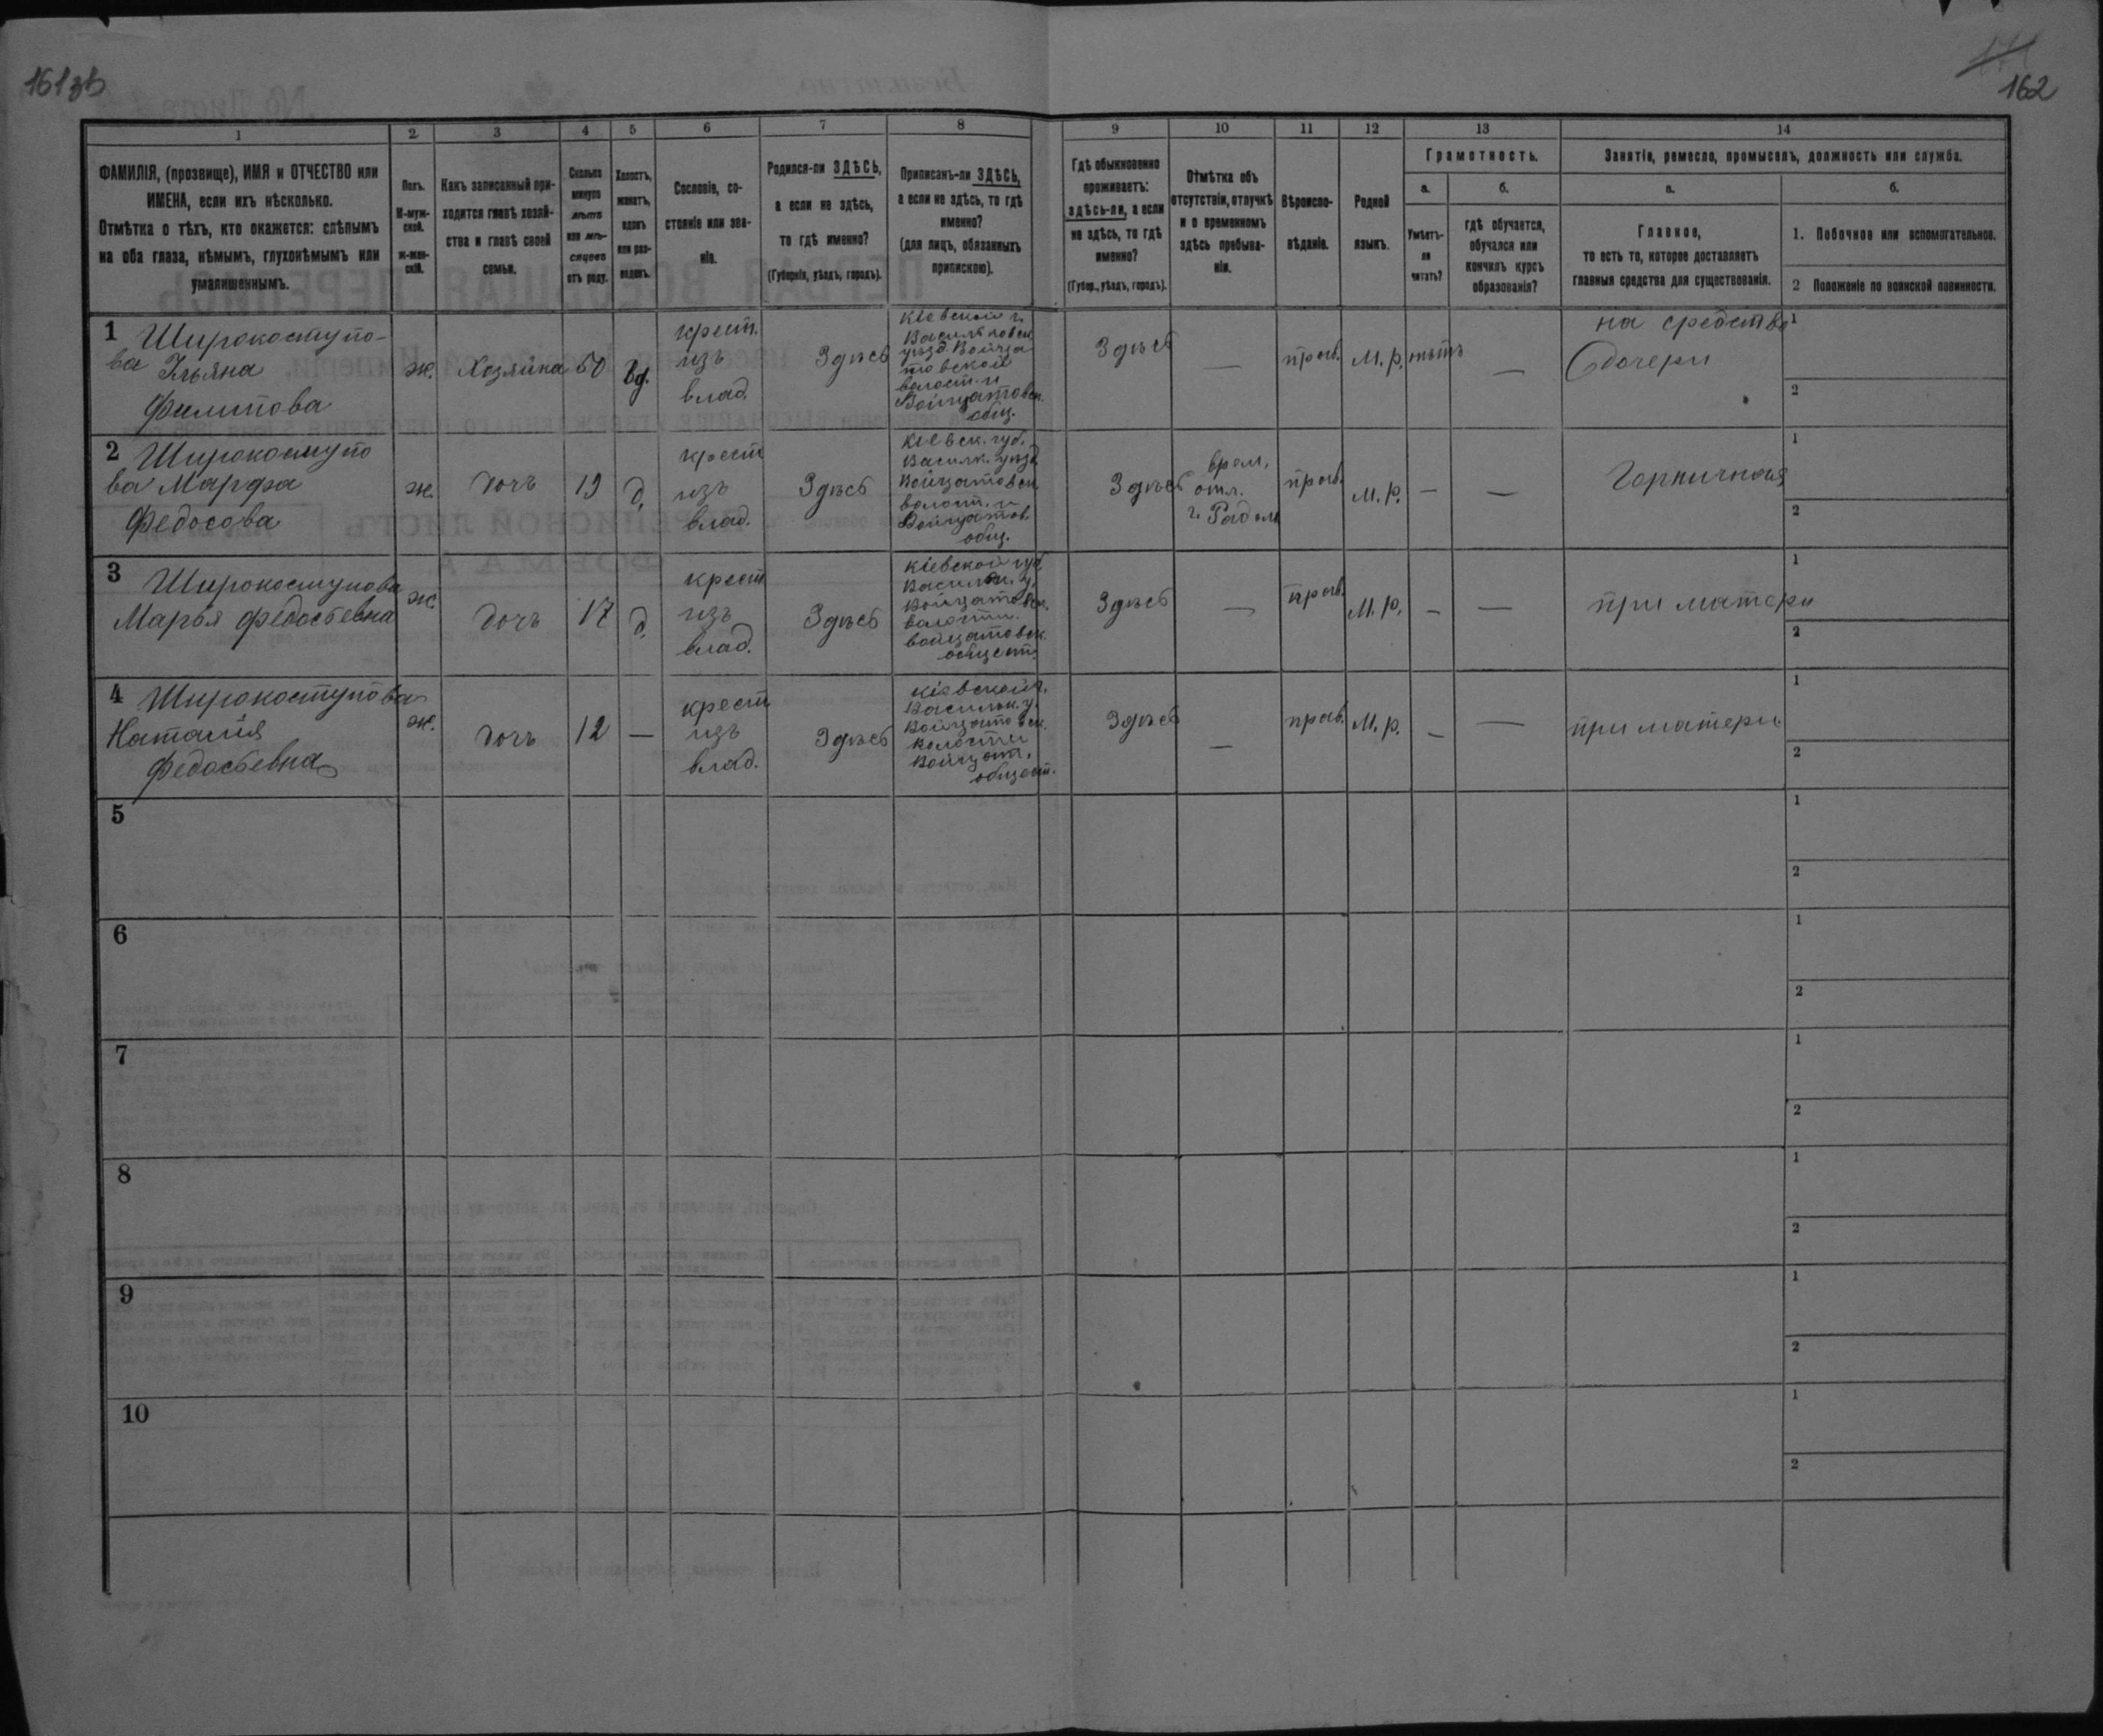 161зв
171
162
1
2
3
4
5
6
7
8
9
10
11
12
13
14
ФАМИЛІЯ, (прозвище), ИМЯ и ОТЧЕСТВО или
ИМЕНА, если ихъ нѣсколько.
Отмѣтка о тѣхъ, кто окажется: слѣпымъ
на оба глаза, нѣмымъ, глухонѣмымъ или
умалишеннымъ.
Полъ.
М-муж-
ской.
ж-жен-
скій.
Какъ записанный при-
ходится главѣ хозяй-
ства и главѣ своей
семьи.
Сколько
минуло
лѣтъ
или мѣ-
сяцевъ
отъ роду.
Холостъ,
женатъ,
вдовъ
или раз-
веденъ.
Сословіе, со-
стояніе или зва-
ніе.
Родился-ли ЗДѢСЬ,
а если не здѣсь,
то гдѣ именно?
(Губернія, уѣздъ, городъ).
Приписанъ-ли ЗДѢСЬ,
а если не здѣсь, то гдѣ
именно?
(для лицъ, обязанныхъ
припискою).
Гдѣ обыкновенно
проживаетъ:
здѣсь-ли, а если
не здѣсь, то гдѣ
именно?
(Губер., уѣздъ, городъ).
Отмѣтка объ
отсутствіи, отлучкѣ
и о временномъ
здѣсь пребыва-
ніи.
Вѣроиспо-
вѣданіе.
Родной
языкъ.
Грамотность.
а.
б.
Умѣетъ-
ли
читать?
гдѣ обучается,
обучался или
кончилъ курсъ
образованія?
Занятіе, ремесло, промыселъ, должность или служба.
а.
б.
Главное,
то есть то, которое доставляетъ
главныя средства для существованія.
1. Побочное или вспомогательное.
2 Положеніе по воинской повинности.
1 Широкоступо-
ва Ульяна
Филипова
ж.
Хозяйка
50
вд.
крест.
изъ
влад.
Здѣсь
Кіевской г.
Васильковск
уѣзд. Войца
товской
волост. и
Войцатовск.
общ.
Здѣсь
—
прав.
М. р.
нѣтъ
—
на средства
дочери
1
2
2 Широкоступо
ва Марфа
Федосова
ж.
дочь
19
д.
крест
изъ
влад.
Здѣсь
Кіевск. губ.
Васильк. уѣзд
Войцатовск
волост. и
Войцатов.
общ.
Здѣсь
врем.
отл.
прав.
М. р.
—
—
Горничная
1
2
3 Широкоступова
Марья Федосьевна
ж.
дочь
17
д.
крест
изъ
влад.
Здѣсь
Кіевской губ.
Васильк. у.
Войцатовск.
волости.
войцатовск.
общест.
Здѣсь
—
прав.
М. р.
—
—
при матери
1
2
4 Широкоступова
Наталія
Федосьевна
ж.
дочь
12
—
крест
изъ
влад.
Здѣсь
Кіевской г.
Васильк. у.
Войцатовск.
волости
Войцат.
общест.
Здѣсь
—
прав.
М. р.
—
—
при матери
1
2
5
1
2
6
1
2
7
1
2
8
1
2
9
1
2
10
1
2